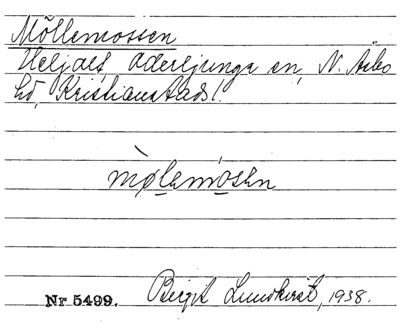 Möllemossen
Heljalt, Oderljunga sn, N. Åsbo
hd, Kristianstads l.
mø̀lemosen
Nr 5499. Birgit Lundkvist, 1938.